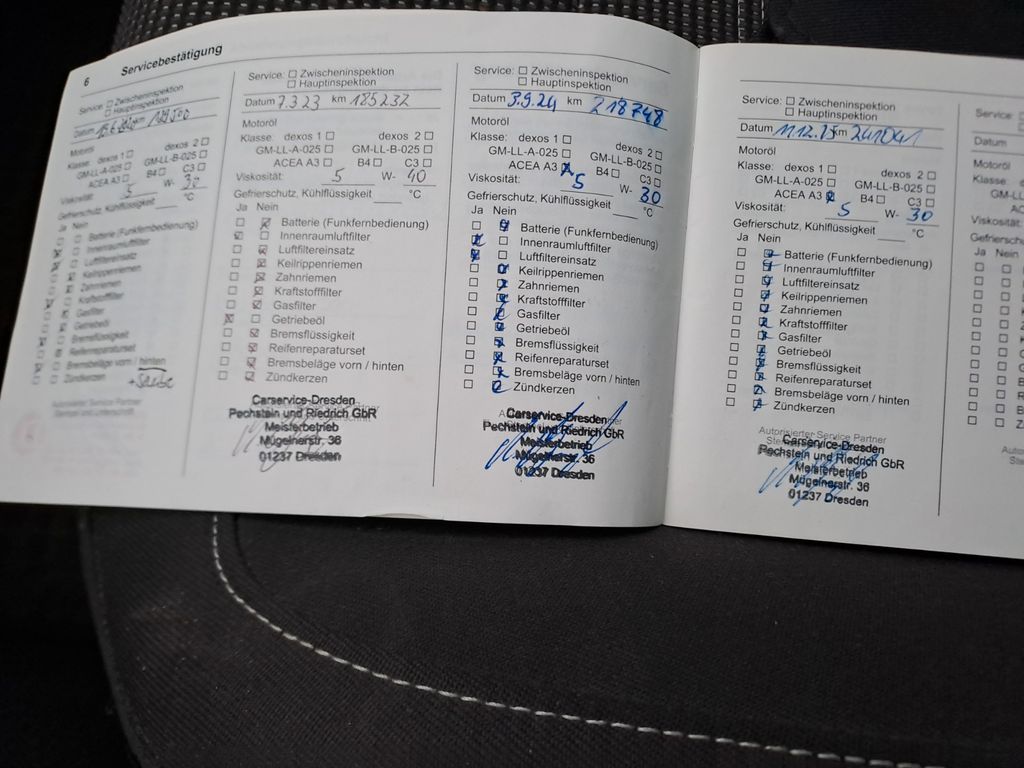 6 Servicebestätigung
Service: Zwischeninspektion
Hauptinspektion
Datum km
Motoröl
Klasse: dexos 1 dexos 2
GM-LL-A-025 GM-LL-B-025
ACEA A3 B4 C3
Viskosität: 5 W- 30
Gefrierschutz, Kühlflüssigkeit °C
Ja Nein
Batterie (Funkfernbedienung)
Innenraumluftfilter
Luftfiltereinsatz
Keilrippenriemen
Zahnriemen
Kraftstofffilter
Gasfilter
Getriebeöl
Bremsflüssigkeit
Reifenreparaturset
Bremsbeläge vorn / hinten
Zündkerzen
Autorisierter Service Partner
Stempel und Unterschrift
Service: Zwischeninspektion
Hauptinspektion
Datum 7.3.23 km 185232
Motoröl
Klasse: dexos 1 dexos 2
GM-LL-A-025 GM-LL-B-025
ACEA A3 B4 C3
Viskosität: 5 W- 40
Gefrierschutz, Kühlflüssigkeit °C
Ja Nein
Batterie (Funkfernbedienung)
Innenraumluftfilter
Luftfiltereinsatz
Keilrippenriemen
Zahnriemen
Kraftstofffilter
Gasfilter
Getriebeöl
Bremsflüssigkeit
Reifenreparaturset
Bremsbeläge vorn / hinten
Zündkerzen
Carservice-Dresden
Pechstein und Riedrich GbR
Meisterbetrieb
Mügelnerstr. 36
01237 Dresden
Service: Zwischeninspektion
Hauptinspektion
Datum 3.9.24 km 218748
Motoröl
Klasse: dexos 1 dexos 2
GM-LL-A-025 GM-LL-B-025
ACEA A3 B4 C3
Viskosität: 5 W- 30
Gefrierschutz, Kühlflüssigkeit °C
Ja Nein
Batterie (Funkfernbedienung)
Innenraumluftfilter
Luftfiltereinsatz
Keilrippenriemen
Zahnriemen
Kraftstofffilter
Gasfilter
Getriebeöl
Bremsflüssigkeit
Reifenreparaturset
Bremsbeläge vorn / hinten
Zündkerzen
Carservice-Dresden
Pechstein und Riedrich GbR
Meisterbetrieb
Mügelnerstr. 36
01237 Dresden
Service: Zwischeninspektion
Hauptinspektion
Datum 11.12.25 km 241041
Motoröl
Klasse: dexos 1 dexos 2
GM-LL-A-025 GM-LL-B-025
ACEA A3 B4 C3
Viskosität: 5 W- 30
Gefrierschutz, Kühlflüssigkeit °C
Ja Nein
Batterie (Funkfernbedienung)
Innenraumluftfilter
Luftfiltereinsatz
Keilrippenriemen
Zahnriemen
Kraftstofffilter
Gasfilter
Getriebeöl
Bremsflüssigkeit
Reifenreparaturset
Bremsbeläge vorn / hinten
Zündkerzen
Autorisierter Service Partner
Carservice-Dresden
Pechstein und Riedrich GbR
Meisterbetrieb
Mügelnerstr. 36
01237 Dresden
Service:
Datum
Motoröl
Klasse:
Viskosität:
Ja Nein